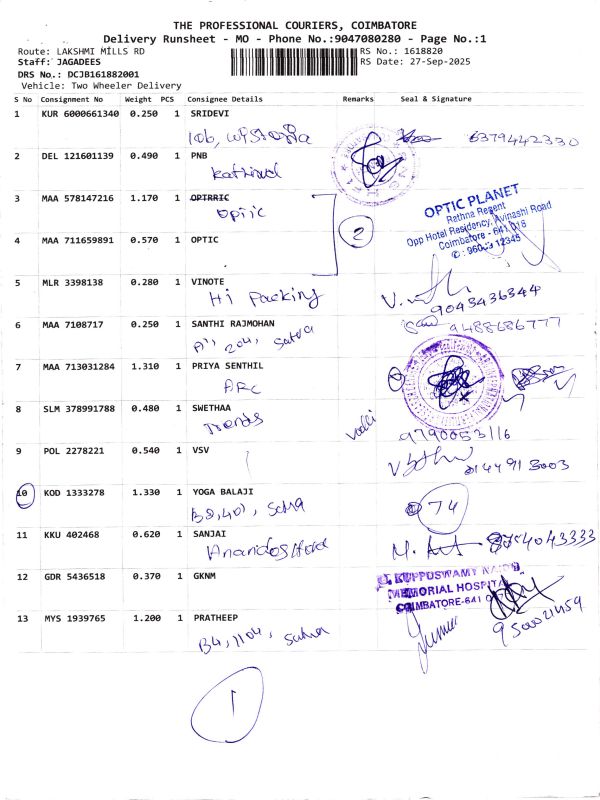 THE PROFESSIONAL COURIERS, COIMBATORE
Delivery Runsheet - MO - Phone No.:9047080280 - Page No.:1
Route: LAKSHMI MILLS RD
RS No.: 1618820
Staff: JAGADEES
RS Date: 27-Sep-2025
DRS No.: DCJB161882001
Vehicle: Two Wheeler Delivery
S No Consignment No Weight PCS Consignee Details Remarks Seal & Signature
1 KUR 6000661340 0.250 1 SRIDEVI
106, Wisteria 6379442330
2 DEL 121601139 0.490 1 PNB
3 MAA 578147216 1.170 1 OPTRRIC
Optic
OPTIC PLANET
Rathna Regent
Opp Hotel Residency, Avinashi Road
Coimbatore - 641 018
2
4 MAA 711659891 0.570 1 OPTIC
5 MLR 3398138 0.280 1 VINOTE
Hi Packing 9043436344
6 MAA 7108717 0.250 1 SANTHI RAJMOHAN
204, Satva 9488686777
7 MAA 713031284 1.310 1 PRIYA SENTHIL
ARC
8 SLM 378991788 0.480 1 SWETHAA
Trends
9790053116
9 POL 2278221 0.540 1 VSV
10 KOD 1333278 1.330 1 YOGA BALAJI
74
11 KKU 402468 0.620 1 SANJAI
8754043333
12 GDR 5436518 0.370 1 GKNM
G. KUPPUSWAMY NAIDU
MEMORIAL HOSPITAL
COIMBATORE-641 0
13 MYS 1939765 1.200 1 PRATHEEP
B4, 1104, Satva
1